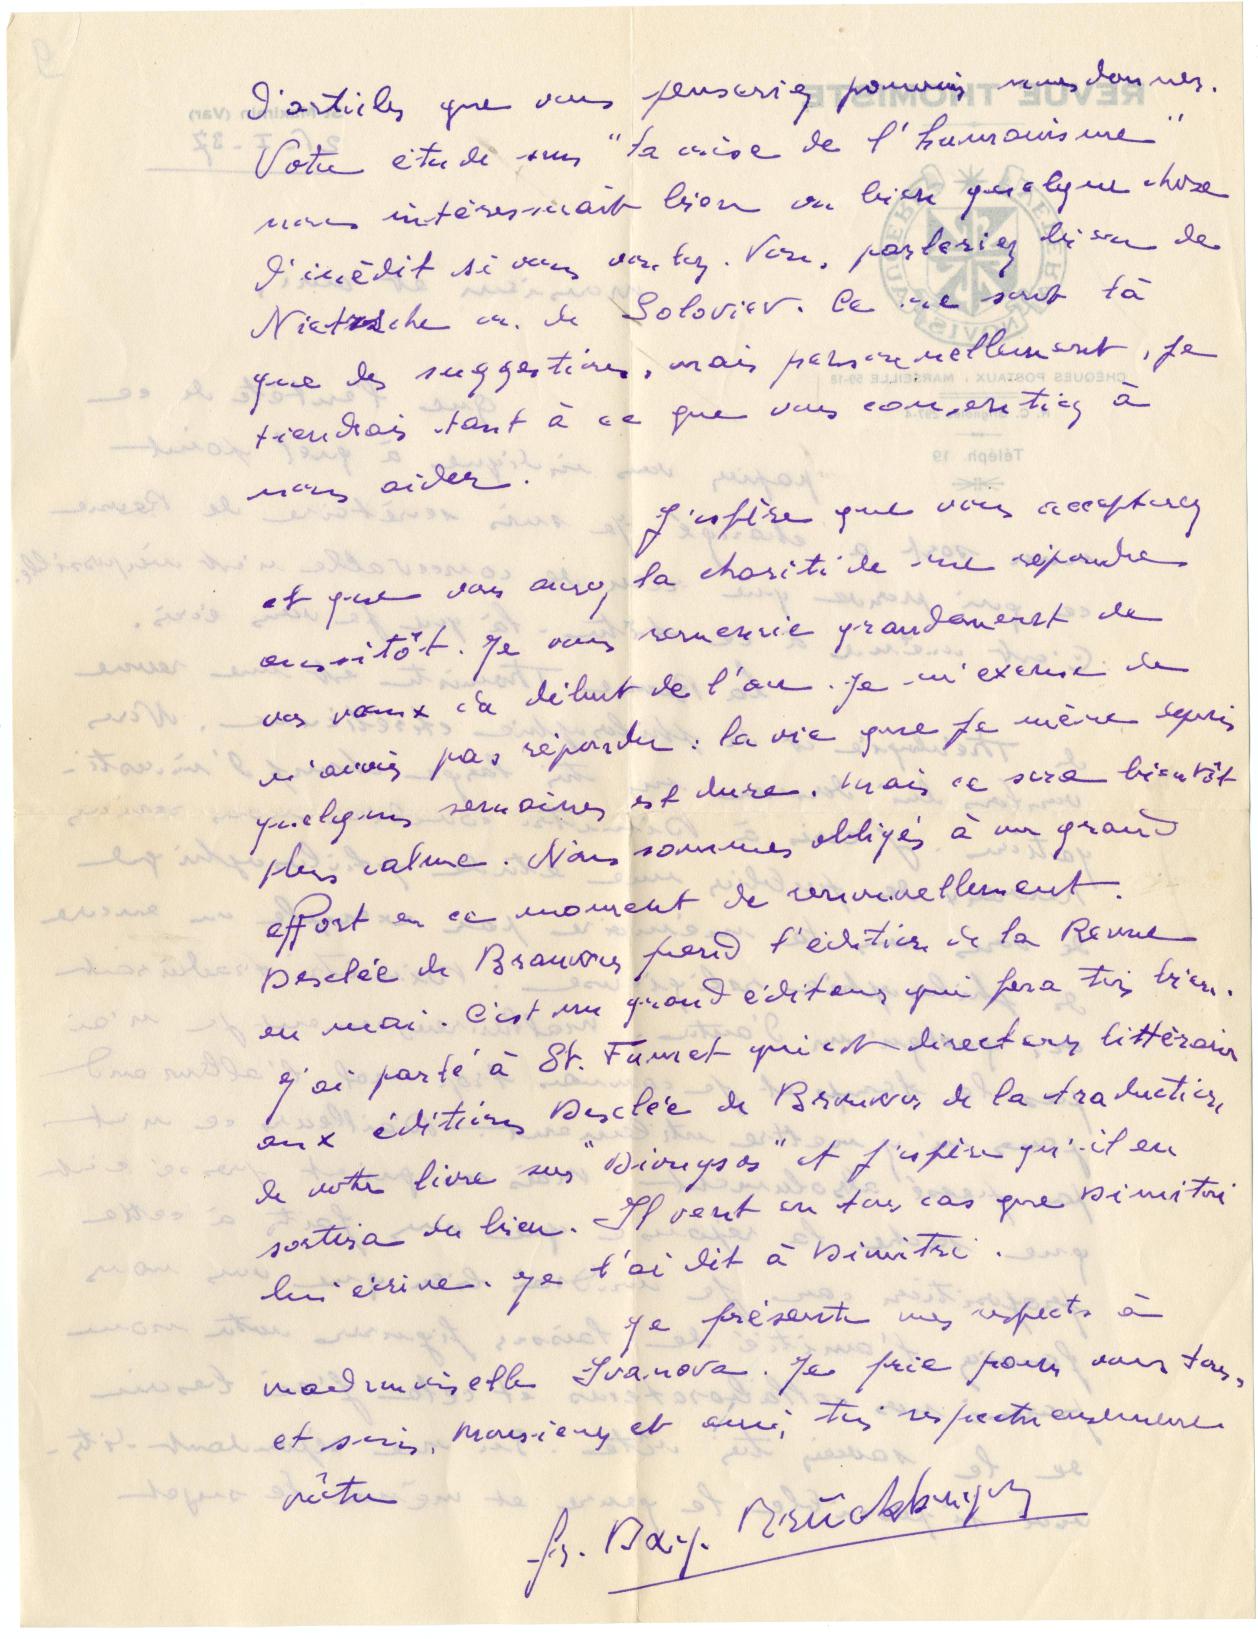 d'articles que vous penseriez pouvoir nous donner.
Votre étude sur "La crise de l'humanisme"
nous intéresserait bien ou bien quelque chose
d'inédit si vous voulez. Vous parleriez bien de
Nietzsche ou de Soloviev. Ce ne sont là
que des suggestions, mais personnellement, je
tiendrais tant à ce que vous consentiez à
nous aider.
J'espère que vous accepterez
et que vous aurez la charité de me répondre
aussitôt. Je vous remercie grandement de
vos vœux du début de l'an. Je m'excuse de
n'avoir pas répondu : la vie que je mène depuis
quelques semaines est dure. Mais ce sera bientôt
plus calme. Nous sommes obligés à un grand
effort en ce moment de renouvellement.
Desclée de Brouwer prend l'édition de la Revue
en mai. C'est un grand éditeur qui fera très bien.
J'ai parlé à St. Fumet qui est directeur littéraire
aux éditions Desclée de Brouwer de la traduction
de votre livre sur "Dionysos" et j'espère qu'il en
sortira du bien. Il veut en tous cas que Dimitri
lui écrive. Je l'ai dit à Dimitri.
Je présente mes respects à
mademoiselle Ivanova. Je prie pour vous tous,
et suis, Monsieur et ami, très respectueusement
vôtre
fr. Ray. Brückberger
REVUE THOMISTE
St Maximin (Var)
CHÈQUES POSTAUX : MARSEILLE 59-18
Téléph. 19